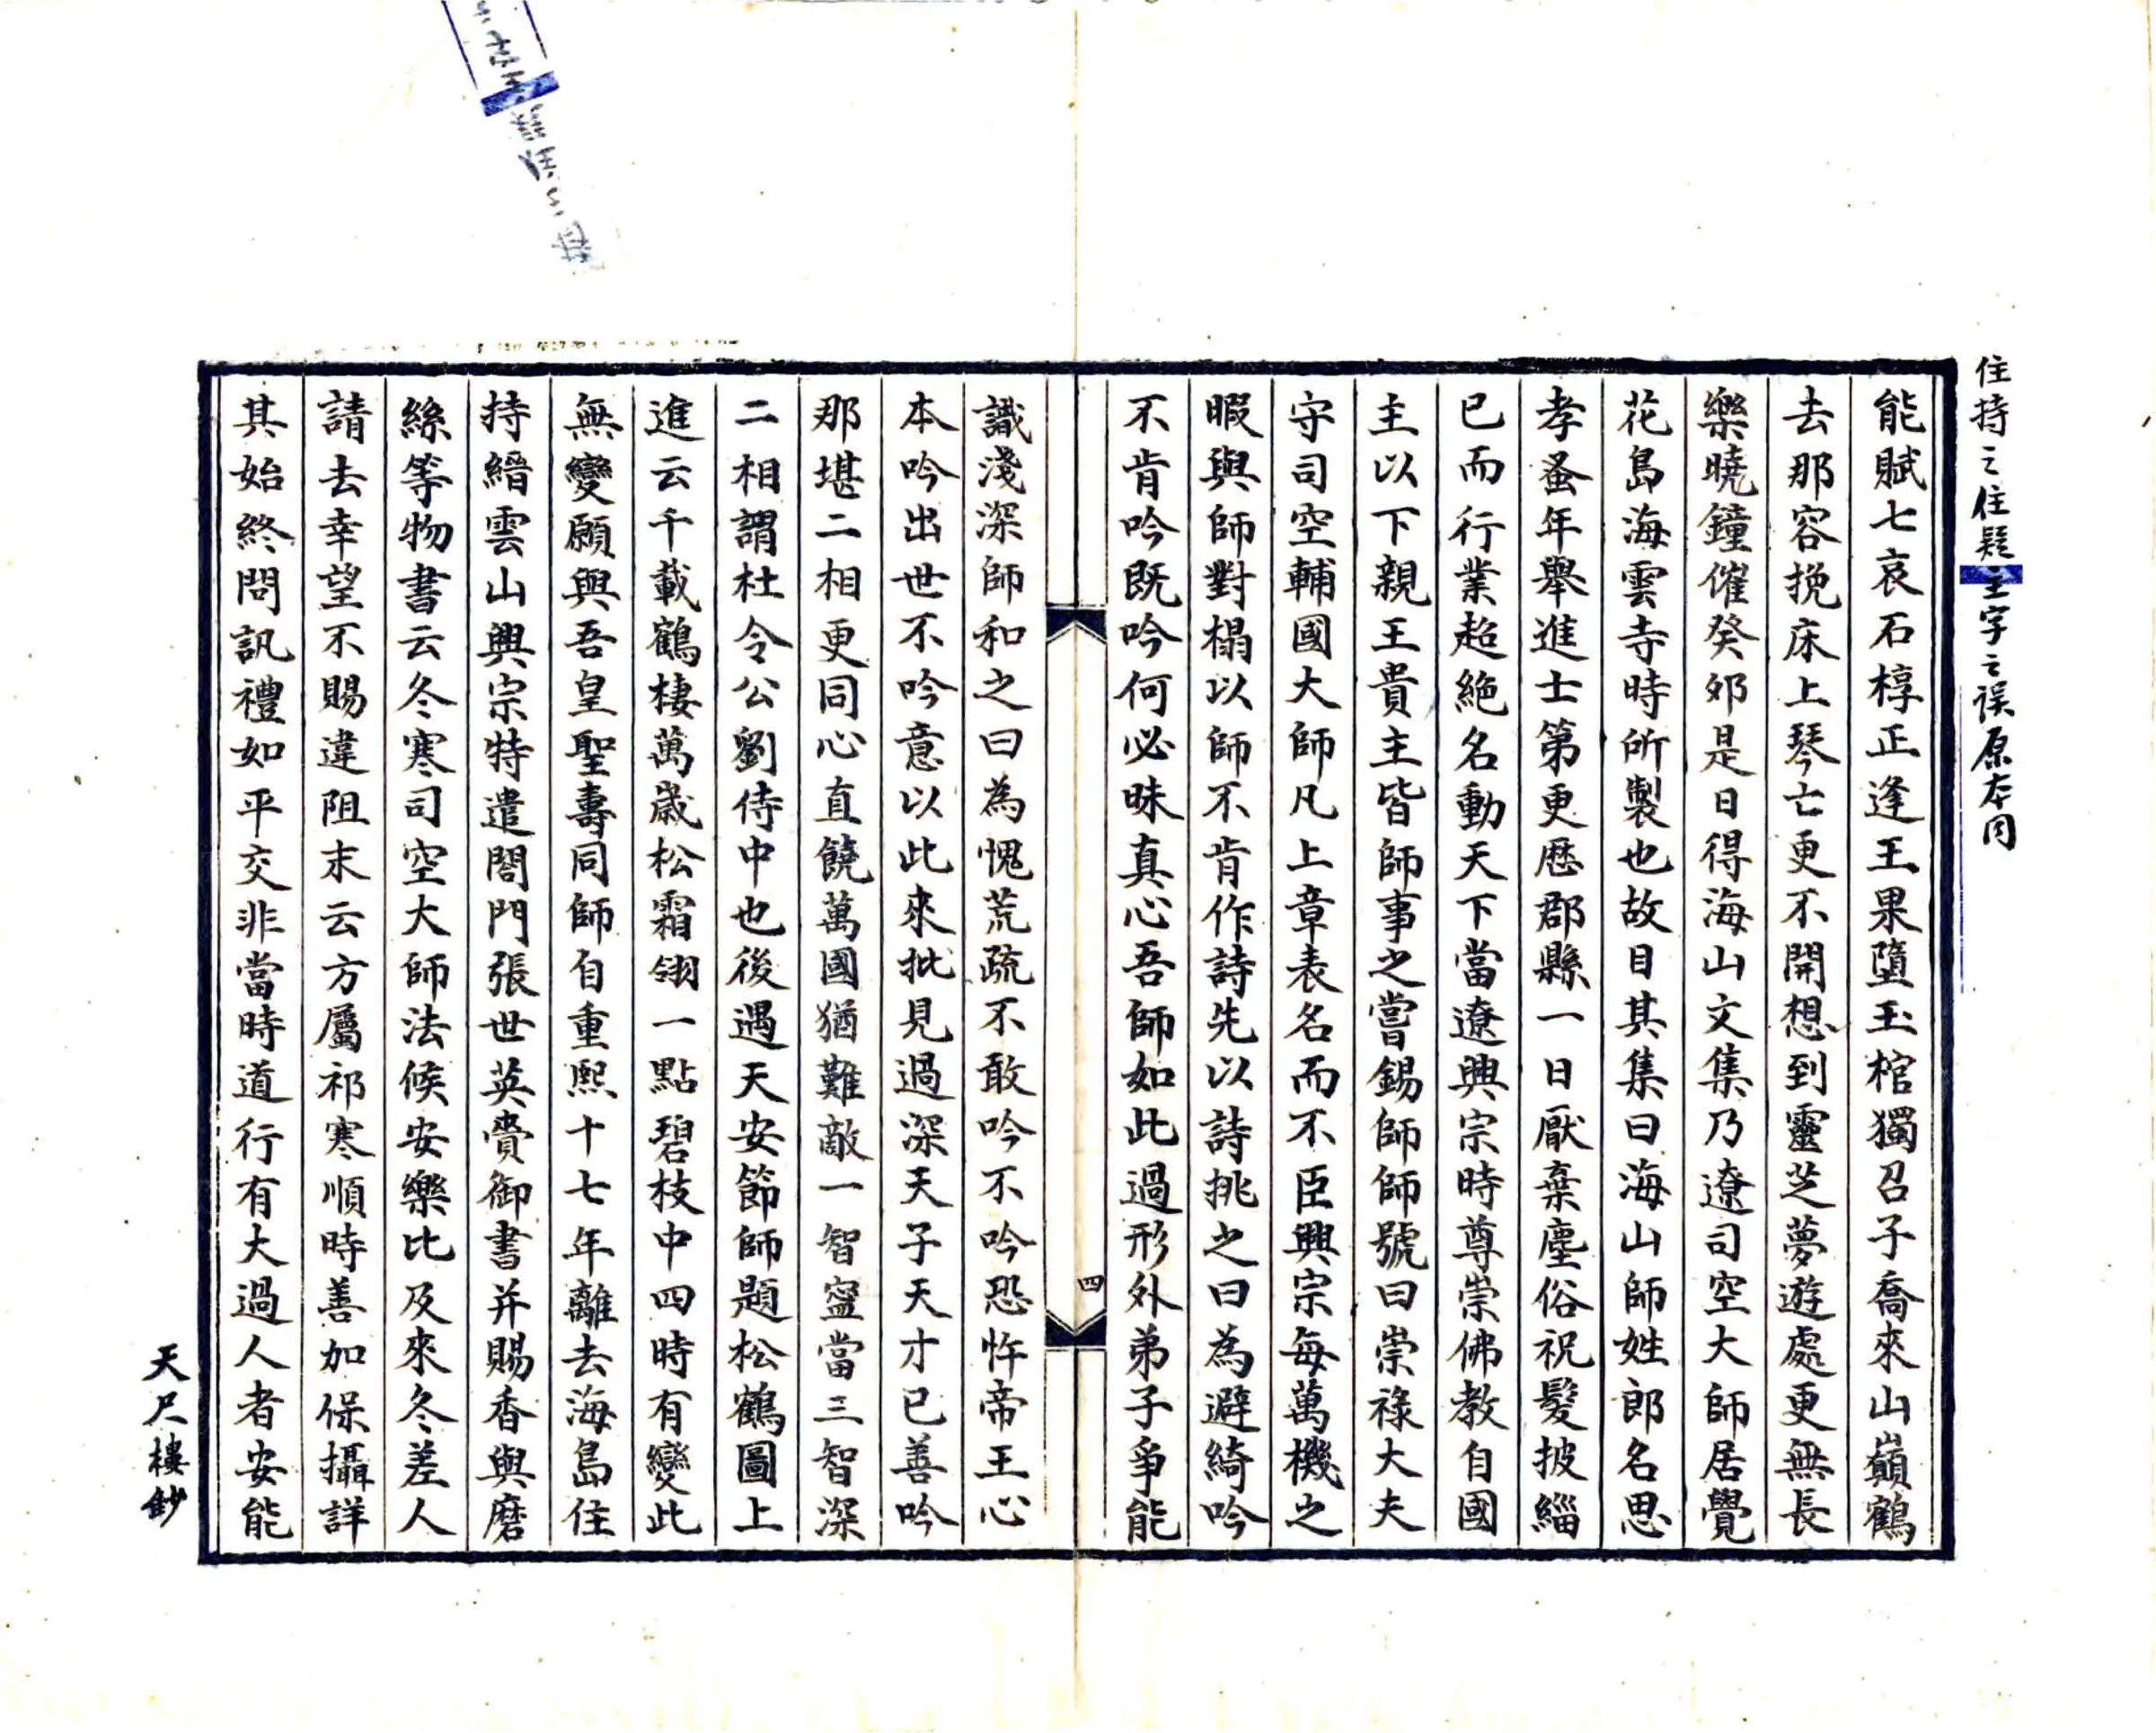 住持之住疑主字之误原本同
能賦七哀石椁正逢王果墮玉棺獨召子喬來山巔鶴
去那容挽床上琴亡更不開想到靈芝夢遊處更無長
樂曉鐘催癸夘是日得海山文集乃遼司空大師居覺
花島海雲寺時所製也故目其集曰海山師姓郎名思
孝蚤年舉進士第更歷郡縣一日厭棄塵俗祝髮披緇
已而行業超絶名動天下當遼興宗時尊崇佛教自國
主以下親王貴主皆師事之嘗錫師師號曰崇祿大夫
守司空輔國大師凡上章表名而不臣興宗每萬機之
暇與師對榻以師不肯作詩先以詩挑之曰為避綺吟
不肯吟既吟何必昧真心吾師如此過形外弟子爭能
四
識淺深師和之曰為愧荒疏不敢吟不吟恐忤帝王心
本吟出世不吟意以此來批見過深天子天才已善吟
那堪二相更同心直饒萬國猶難敵一智寍當三智深
二相謂杜令公劉侍中也後遇天安節師題松鶴圖上
進云千載鶴棲萬歲松霜翎一點碧枝中四時有變此
無變願與吾皇聖壽同師自重熙十七年離去海島住
持縉雲山興宗特遣閤門張世英賷御書并賜香與磨
絲等物書云冬寒司空大師法候安樂比及來冬差人
請去幸望不賜違阻末云方屬祁寒順時善加保攝詳
其始終問訊禮如平交非當時道行有大過人者安能
天尺樓鈔